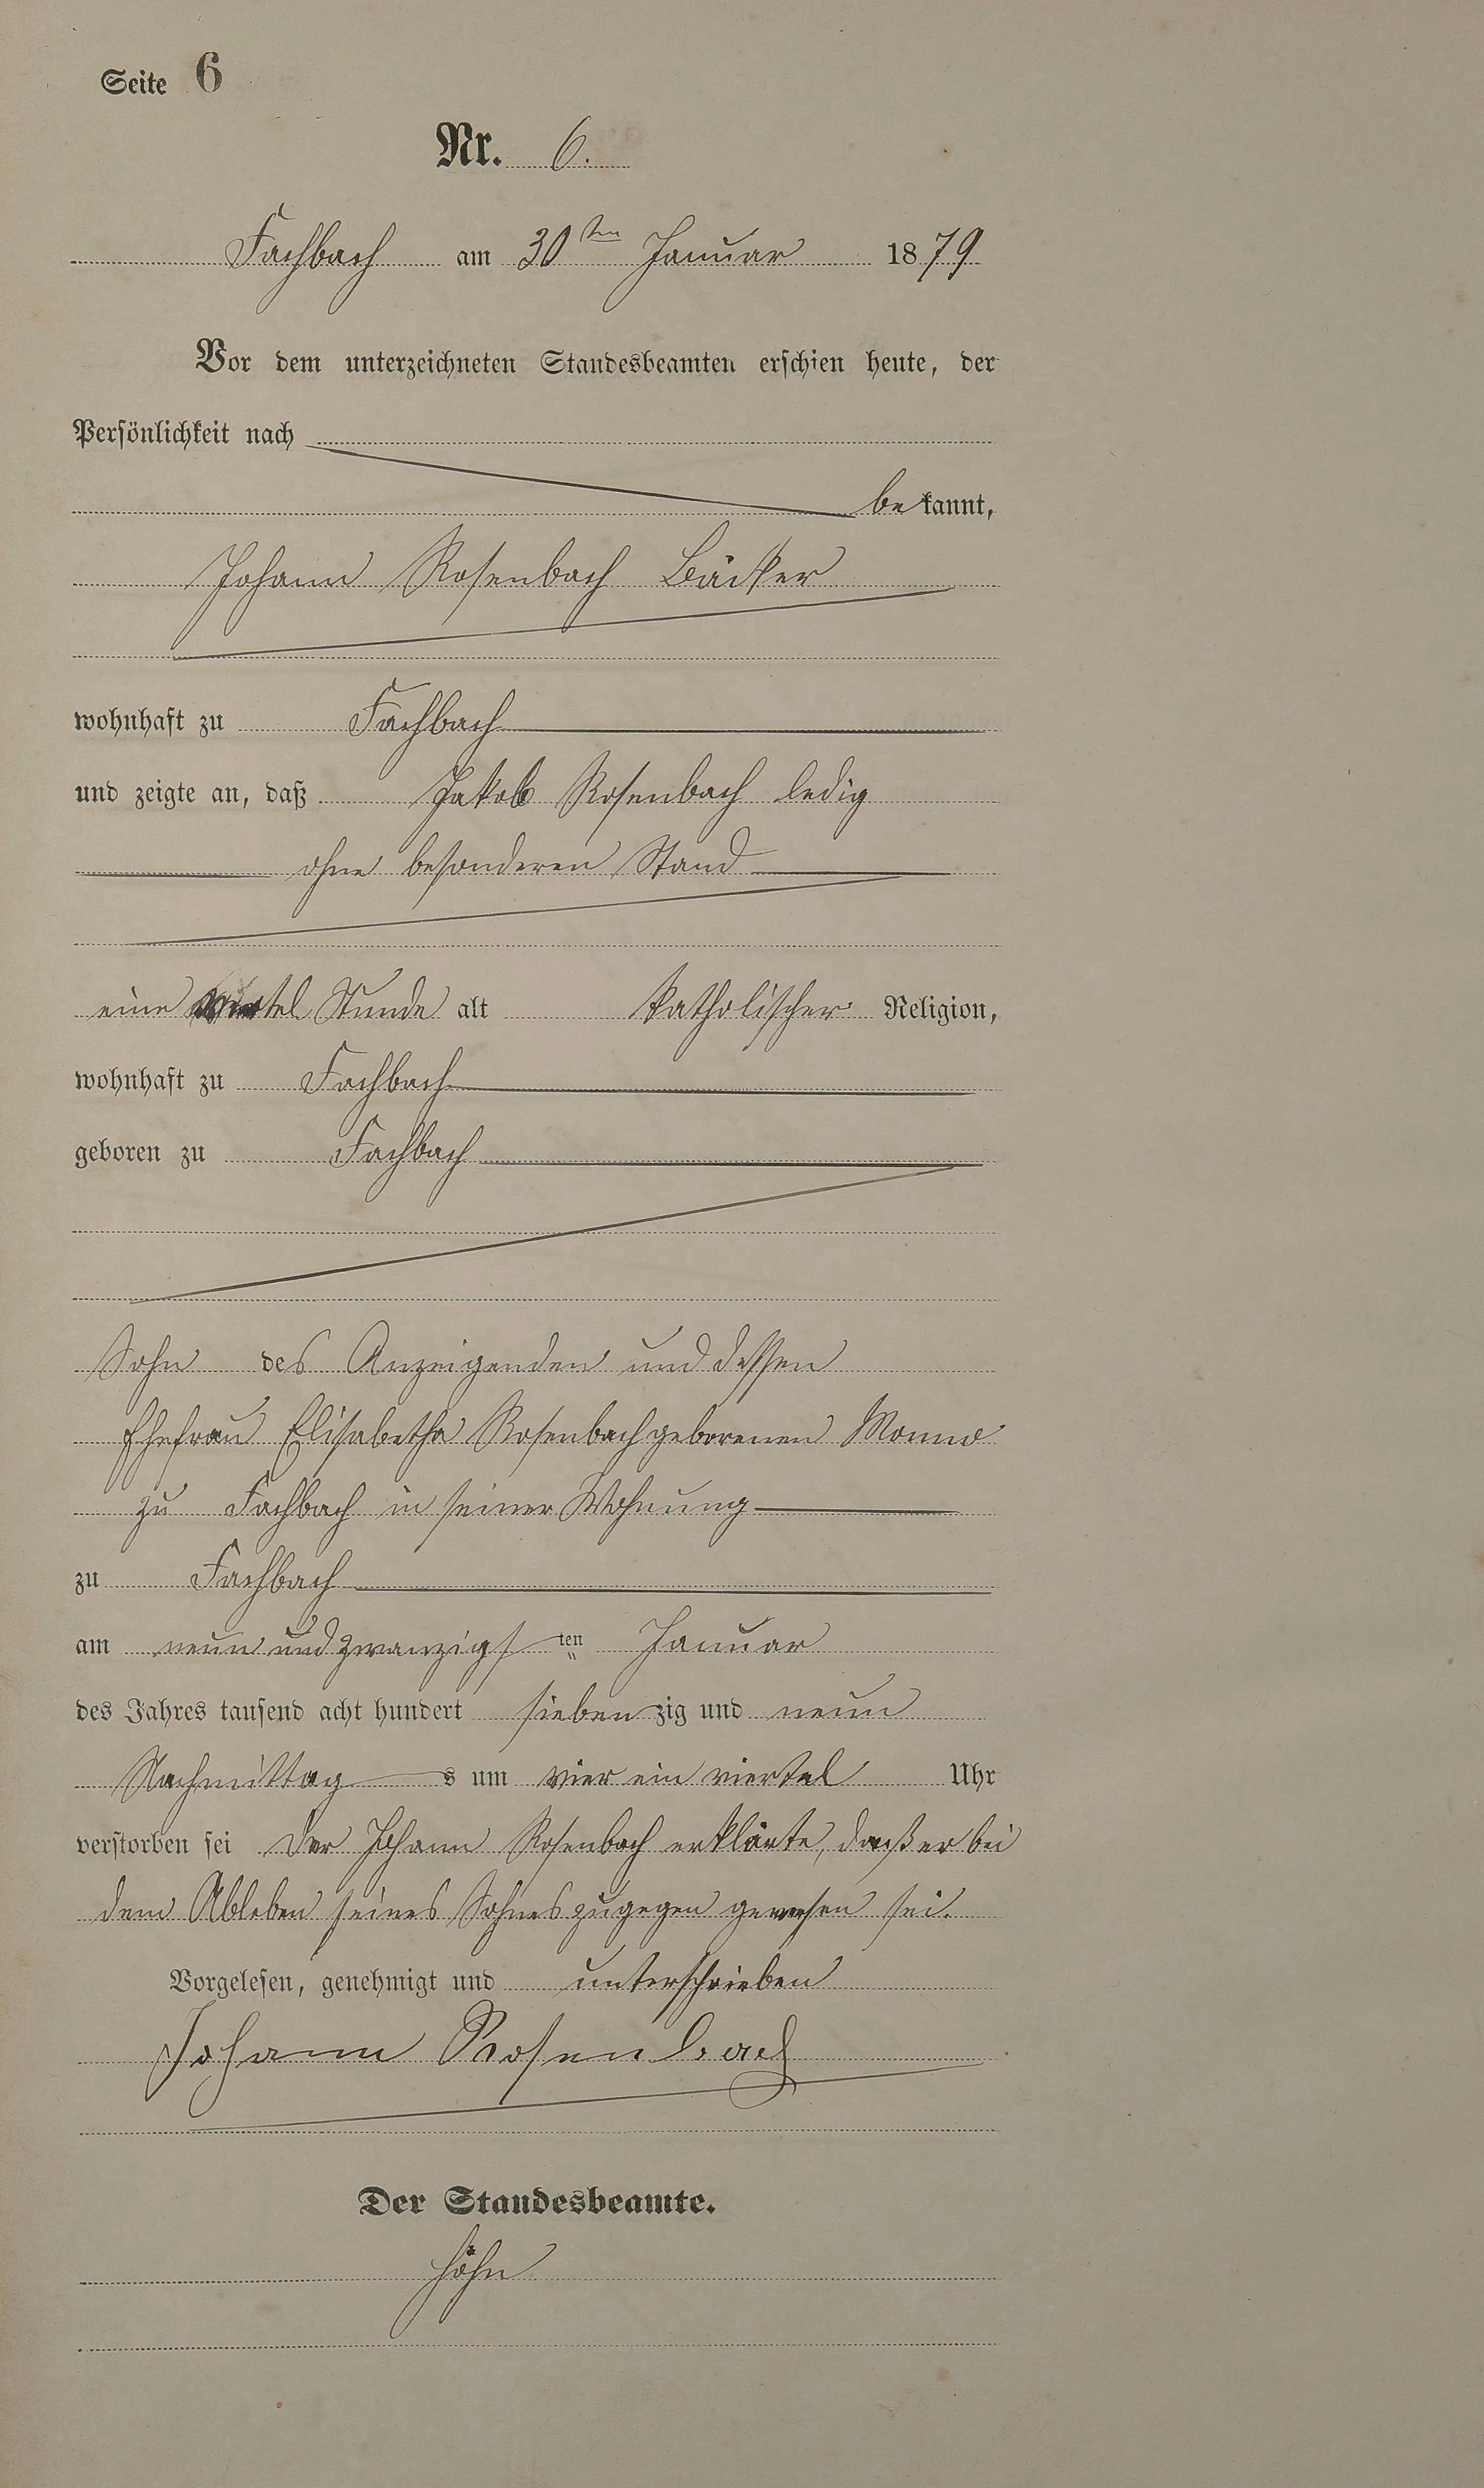 Seite 6
Nr. 6.
Fachbach am 30ten Januar 1879
Vor dem unterzeichneten Standesbeamten erschien heute, der
Persönlichkeit nach
bekannt,
Johann Rosenbach Bäcker
wohnhaft zu Fachbach
und zeigte an, daß Jakob Rosenbach ledig
ohne besonderen Stand
eine viertel Stunde alt katholischer Religion,
wohnhaft zu Fachbach
geboren zu Fachbach
Sohn des Anzeigenden und dessen
Ehefrau Elisabetha Rosenbach geborenen
zu Fachbach in seiner Wohnung
zu Fachbach
am neun und zwanzigsten Januar
des Jahres tausend acht hundert siebenzig und neun
Nachmittags um vier ein viertel Uhr
verstorben sei Der Johann Rosenbach erklärte, daß er bei
dem Ableben seines Sohnes zugegen gewesen sei.
Vorgelesen, genehmigt und unterschrieben
Johann Rosenbach
Der Standesbeamte.
Höhn